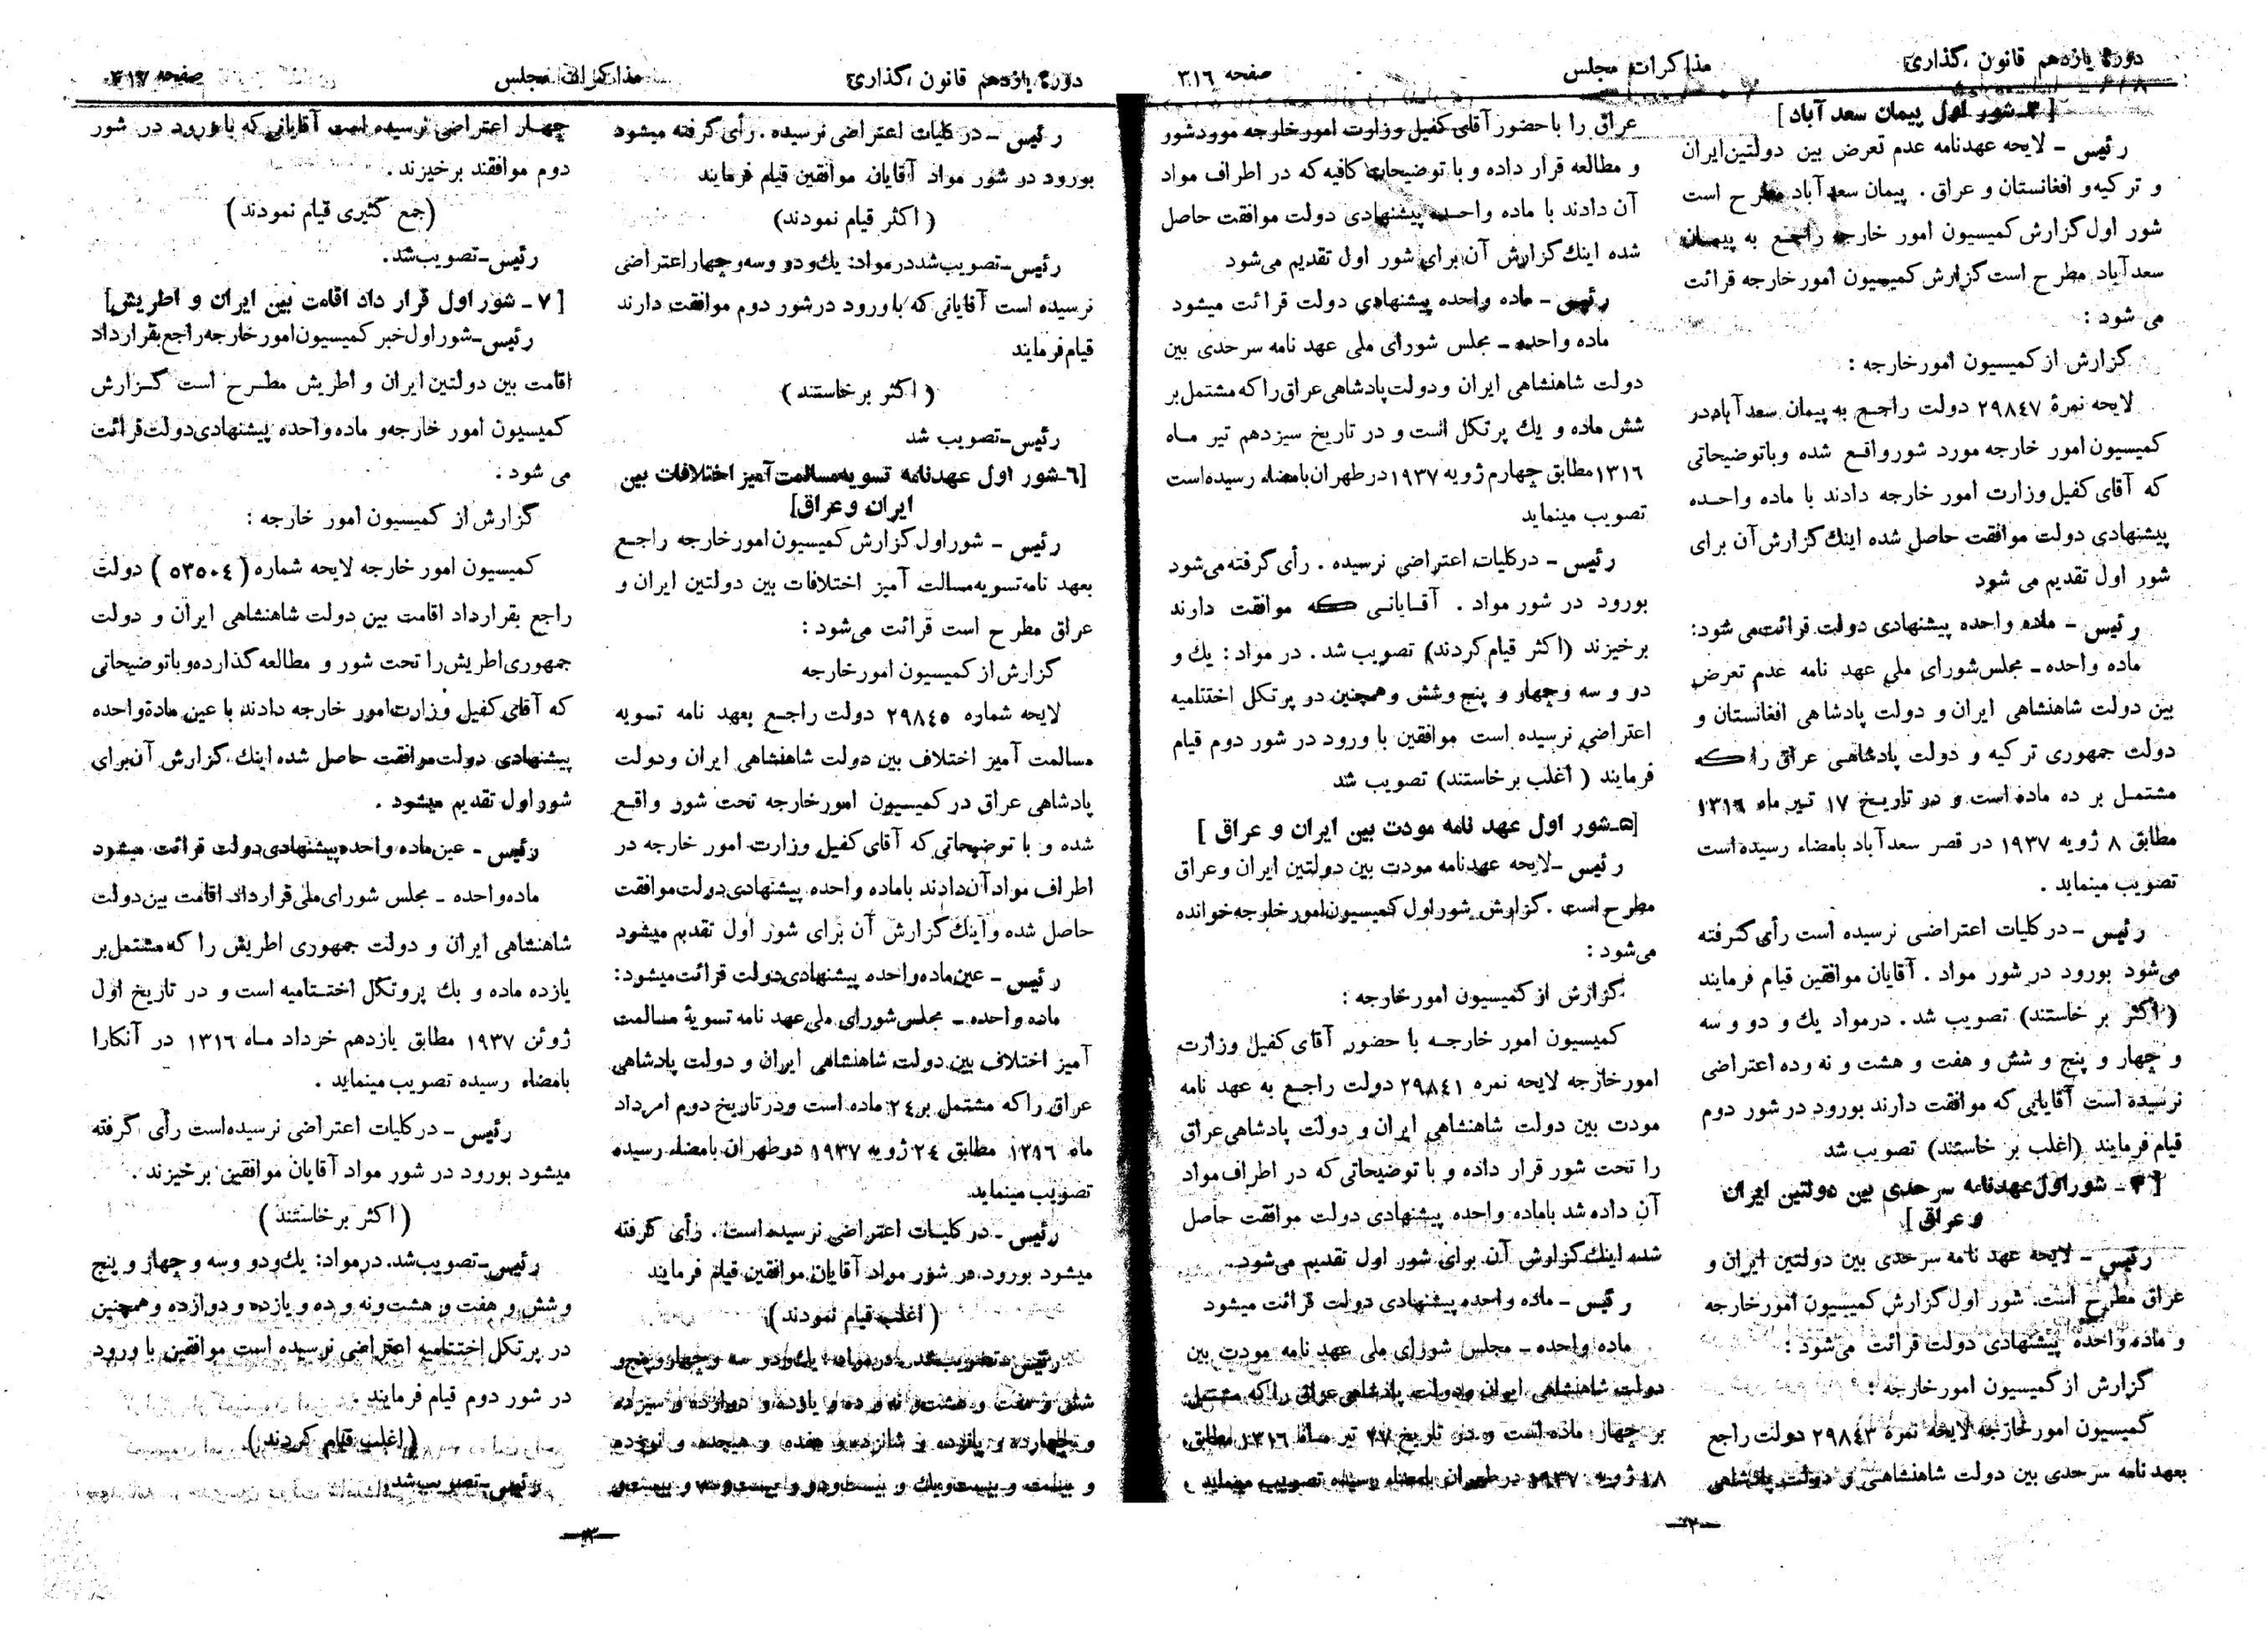 دورهٔ یازدهم قانون گذاری
مذاکرات مجلس
صفحه ٣١٦
[ ٣ـ شور اول پیمان سعد آباد ]
رئیس - لایحه عهدنامه عدم تعرض بین دولتین ایران
و ترکیه و افغانستان و عراق . پیمان سعد آباد مطرح است
شور اول گزارش کمیسیون امور خارجه راجع به پیمان
سعد آباد مطرح است گزارش کمیسیون امور خارجه قرائت
می شود :
گزارش از کمیسیون امور خارجه :
لایحه نمرهٔ ٢٩٨٤٧ دولت راجع به پیمان سعد آباد در
کمیسیون امور خارجه مورد شور واقع شده و با توضیحاتی
که آقای کفیل وزارت امور خارجه دادند با ماده واحده
پیشنهادی دولت موافقت حاصل شده اینك گزارش آن برای
شور اول تقدیم می شود
رئیس - ماده واحده پیشنهادی دولت قرائت می شود:
ماده واحده - مجلس شورای ملی عهد نامه عدم تعرض
بین دولت شاهنشاهی ایران و دولت پادشاهی افغانستان و
دولت جمهوری ترکیه و دولت پادشاهی عراق را که
مشتمل بر ده ماده است و در تاریخ ١٧ تیر ماه ١٣١٦
مطابق ٨ ژویه ١٩٣٧ در قصر سعد آباد بامضاء رسیده است
تصویب مینماید .
رئیس - در کلیات اعتراضی نرسیده است رأی گرفته
می شود بورود در شور مواد . آقایان موافقین قیام فرمایند
(اکثر بر خاستند) تصویب شد . در مواد یك و دو و سه
و چهار و پنج و شش و هفت و هشت و نه و ده اعتراضی
نرسیده است آقایانی که موافقت دارند بورود در شور دوم
قیام فرمایند (اغلب بر خاستند) تصویب شد
[ ٤ - شور اول عهدنامه سرحدی بین دولتین ایران
و عراق ]
رئیس - لایحه عهد نامه سرحدی بین دولتین ایران و
عراق مطرح است. شور اول گزارش کمیسیون امور خارجه
و ماده واحده پیشنهادی دولت قرائت می شود :
گزارش از کمیسیون امور خارجه :
کمیسیون امور خارجه لایحه نمره ٢٩٨٤٣ دولت راجع
بعهد نامه سرحدی بین دولت شاهنشاهی و دولت پادشاهی
عراق را با حضور آقای کفیل وزارت امور خارجه مورد شور
و مطالعه قرار داده و با توضیحات کافیه که در اطراف مواد
آن دادند با ماده واحده پیشنهادی دولت موافقت حاصل
شده اینك گزارش آن برای شور اول تقدیم می شود
رئیس - ماده واحده پیشنهادی دولت قرائت میشود
ماده واحده - مجلس شورای ملی عهد نامه سرحدی بین
دولت شاهنشاهی ایران و دولت پادشاهی عراق را که مشتمل بر
شش ماده و یك پرتکل است و در تاریخ سیزدهم تیر ماه
١٣١٦ مطابق چهارم ژویه ١٩٣٧ در طهران بامضاء رسیده است
تصویب مینماید
رئیس - در کلیات اعتراضی نرسیده . رأی گرفته می شود
بورود در شور مواد . آقایانی که موافقت دارند
برخیزند (اکثر قیام کردند) تصویب شد . در مواد : یك و
دو و سه و چهار و پنج و شش و همچنین دو پرتکل اختتامیه
اعتراضی نرسیده است موافقین با ورود در شور دوم قیام
فرمایند ( اغلب برخاستند) تصویب شد
[٥ـ شور اول عهد نامه مودت بین ایران و عراق ]
رئیس - لایحه عهدنامه مودت بین دولتین ایران و عراق
مطرح است . گزارش شور اول کمیسیون امور خارجه خوانده
می شود :
گزارش از کمیسیون امور خارجه :
کمیسیون امور خارجه با حضور آقای کفیل وزارت
امور خارجه لایحه نمره ٢٩٨٤١ دولت راجع به عهد نامه
مودت بین دولت شاهنشاهی ایران و دولت پادشاهی عراق
را تحت شور قرار داده و با توضیحاتی که در اطراف مواد
آن داده شد باماده واحده پیشنهادی دولت موافقت حاصل
شده اینك گزارش آن برای شور اول تقدیم می شود.
رئیس - ماده واحده پیشنهادی دولت قرائت میشود
ماده واحده - مجلس شورای ملی عهد نامه مودت بین
دولت شاهنشاهی ایران و دولت پادشاهی عراق را که مشتمل
بر چهار ماده است و در تاریخ ٢٧ تیر ماه ١٣١٦ مطابق
١٨ ژویه ١٩٣٧ در طهران بامضاء رسیده تصویب مینماید
ـ٢ـ
دورهٔ یازدهم قانون گذاری
مذاکرات مجلس
صفحه ٣١٧
رئیس - در کلیات اعتراضی نرسیده . رأی گرفته میشود
بورود در شور مواد آقایان موافقین قیام فرمایند
( اکثر قیام نمودند)
رئیس - تصویب شد در مواد: یك و دو و سه و چهار اعتراضی
نرسیده است آقایانی که با ورود در شور دوم موافقت دارند
قیام فرمایند
( اکثر برخاستند )
رئیس - تصویب شد
[٦ـ شور اول عهدنامه تسویه مسالمت آمیز اختلافات بین
ایران و عراق]
رئیس - شور اول گزارش کمیسیون امور خارجه راجع
بعهد نامه تسویه مسالت آمیز اختلافات بین دولتین ایران و
عراق مطرح است قرائت می شود :
گزارش از کمیسیون امور خارجه
لایحه شماره ٢٩٨٤٥ دولت راجع بعهد نامه تسویه
مسالمت آمیز اختلاف بین دولت شاهنشاهی ایران و دولت
پادشاهی عراق در کمیسیون امور خارجه تحت شور واقع
شده و با توضیحاتی که آقای کفیل وزارت امور خارجه در
اطراف مواد آن دادند باماده واحده پیشنهادی دولت موافقت
حاصل شده و اینك گزارش آن برای شور اول تقدیم میشود
رئیس - عین ماده واحده پیشنهادی دولت قرائت میشود :
ماده واحده - مجلس شورای ملی عهد نامه تسویهٔ مسالمت
آمیز اختلاف بین دولت شاهنشاهی ایران و دولت پادشاهی
عراق را که مشتمل بر ٢٤ ماده است و در تاریخ دوم امرداد
ماه ١٣١٦ مطابق ٢٤ ژویه ١٩٣٧ در طهران بامضاء رسیده
تصویب مینماید
رئیس - در کلیات اعتراضی نرسیده است . رأی گرفته
میشود بورود در شور مواد آقایان موافقین قیام فرمایند
(اغلب قیام نمودند)
رئیس - تصویب شد . در مواد : یك و دو و سه و چهار و پنج و
شش و هفت و هشت و نه و ده و یازده و دوازده و سیزده
و چهارده و پانزده و شانزده و هفده و هیجده و نوزده
و بیست و بیست ویك و بیست ودو و بیست وسه و بیست و
چهار اعتراضی نرسیده است آقایانی که با ورود در شور
دوم موافقند برخیزند .
(جمع کثیری قیام نمودند)
رئیس - تصویب شد .
[ ٧ - شور اول قرار داد اقامت بین ایران و اطریش ]
رئیس - شور اول خبر کمیسیون امور خارجه راجع بقرارداد
اقامت بین دولتین ایران و اطریش مطرح است گزارش
کمیسیون امور خارجه و ماده واحده پیشنهادی دولت قرائت
می شود .
گزارش از کمیسیون امور خارجه :
کمیسیون امور خارجه لایحه شماره ( ٥٣٥٠٤ ) دولت
راجع بقرارداد اقامت بین دولت شاهنشاهی ایران و دولت
جمهوری اطریش را تحت شور و مطالعه گذارده و با توضیحاتی
که آقای کفیل وزارت امور خارجه دادند با عین مادهٔ واحده
پیشنهادی دولت موافقت حاصل شده اینك گزارش آن برای
شور اول تقدیم میشود .
رئیس - عین ماده واحده پیشنهادی دولت قرائت میشود
ماده واحده - مجلس شورای ملی قرارداد اقامت بین دولت
شاهنشاهی ایران و دولت جمهوری اطریش را که مشتمل بر
یازده ماده و یك پروتکل اختتامیه است و در تاریخ اول
ژوئن ١٩٣٧ مطابق یازدهم خرداد ماه ١٣١٦ در آنکارا
بامضاء رسیده تصویب مینماید .
رئیس - در کلیات اعتراضی نرسیده است رأی گرفته
میشود بورود در شور مواد آقایان موافقین برخیزند .
( اکثر برخاستند )
رئیس - تصویب شد. در مواد: یك ودو وسه و چهار و پنج
و شش و هفت و هشت ونه و ده و یازده و دوازده و همچنین
در پرتکل اختتامیه اعتراضی نرسیده است موافقین با ورود
در شور دوم قیام فرمایند .
(اغلب قیام کردند)
رئیس - تصویب شد .
ـ٣ـ